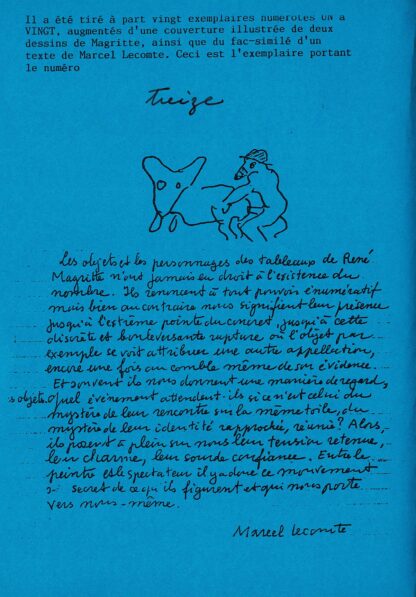 Il a été tiré à part vingt exemplaires numérotés UN à
VINGT, augmentés d'une couverture illustrée de deux
dessins de Magritte, ainsi que du fac-similé d'un
texte de Marcel Lecomte. Ceci est l'exemplaire portant
le numéro
treize
Les objets et les personnages des tableaux de René
Magritte n'ont jamais eu droit à l'existence du
nombre. Ils renoncent à tout pouvoir énumératif
mais bien au contraire nous signifient leur présence
jusqu'à l'extrême pointe du concret, jusqu'à cette
discrète et bouleversante rupture où l'objet par
exemple se voit attribuer une autre appellation,
encore une fois au comble même de son évidence.
Et souvent ils nous donnent une manière de regard,
s objets. Quel événement attendent-ils si ce n'est celui du
mystère de leur rencontre sur la même toile, du
mystère de leur identité rapprochée, réunie? Alors,
ils posent à plein sur nous leur tension retenue,
leur charme, leur sourde confiance. Entre le
peintre et le spectateur il y a donc ce mouvement
secret de ce qu'ils figurent et qui nous porte
vers nous-même.
Marcel Lecomte